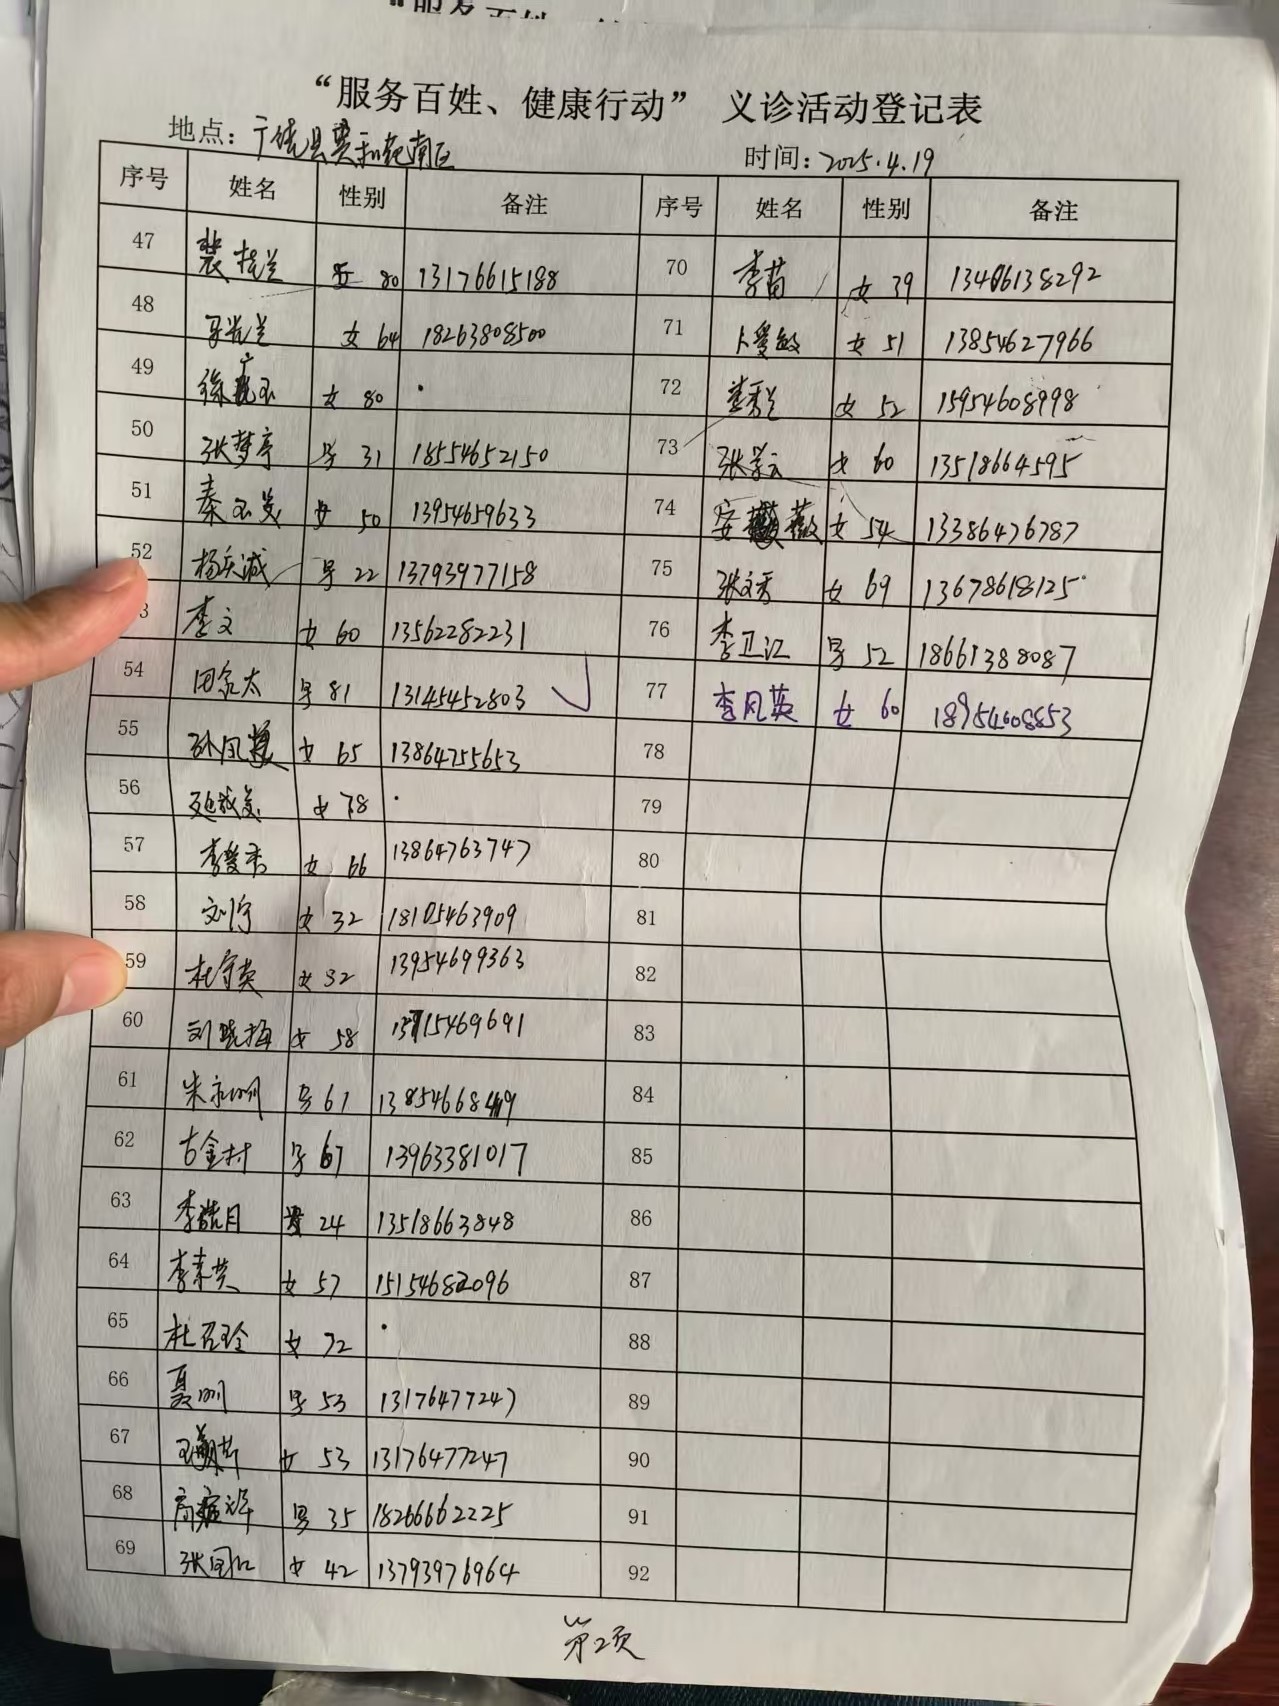 “服务百姓、健康行动” 义诊活动登记表
地点：广饶县 南区 时间：2025.4.19
序号 姓名 性别 备注 序号 姓名 性别 备注
47 女 80 13176615188 70 李苗 女 39 13406138292
48 女 64 18263808500 71 卜爱敏 女 51 13854627966
49 徐 玉 女 80 72 秀兰 女 52 15954608998
50 张梦亭 男 31 18554652150 73 张 云 女 60 13518664595
51 秦玉 女 50 13954659633 74 安 薇 女 54 13386476787
52 杨 诚 男 22 13793977158 75 张文秀 女 69 13678618125
3 李文 女 60 13562282231 76 李卫江 男 52 18661388087
54 田 太 男 81 13145452803 77 李风英 女 60 18954608853
55 孙风 女 65 13864755653 78
56 延 女 78 79
57 李爱秀 女 66 13864763747 80
58 刘 女 32 18105463909 81
59 杜守英 女 32 13954699363 82
60 刘晓梅 女 58 15469691 83
61 朱永明 男 61 84
62 古金村 男 67 13963381017 85
63 李皓月 24 13518663848 86
64 李素英 女 57 15154682096 87
65 杜 玲 女 72 88
66 聂明 男 53 13176477247 89
67 女 53 13176477247 90
68 高 男 35 18266662225 91
69 张 女 42 13793976964 92
第2页